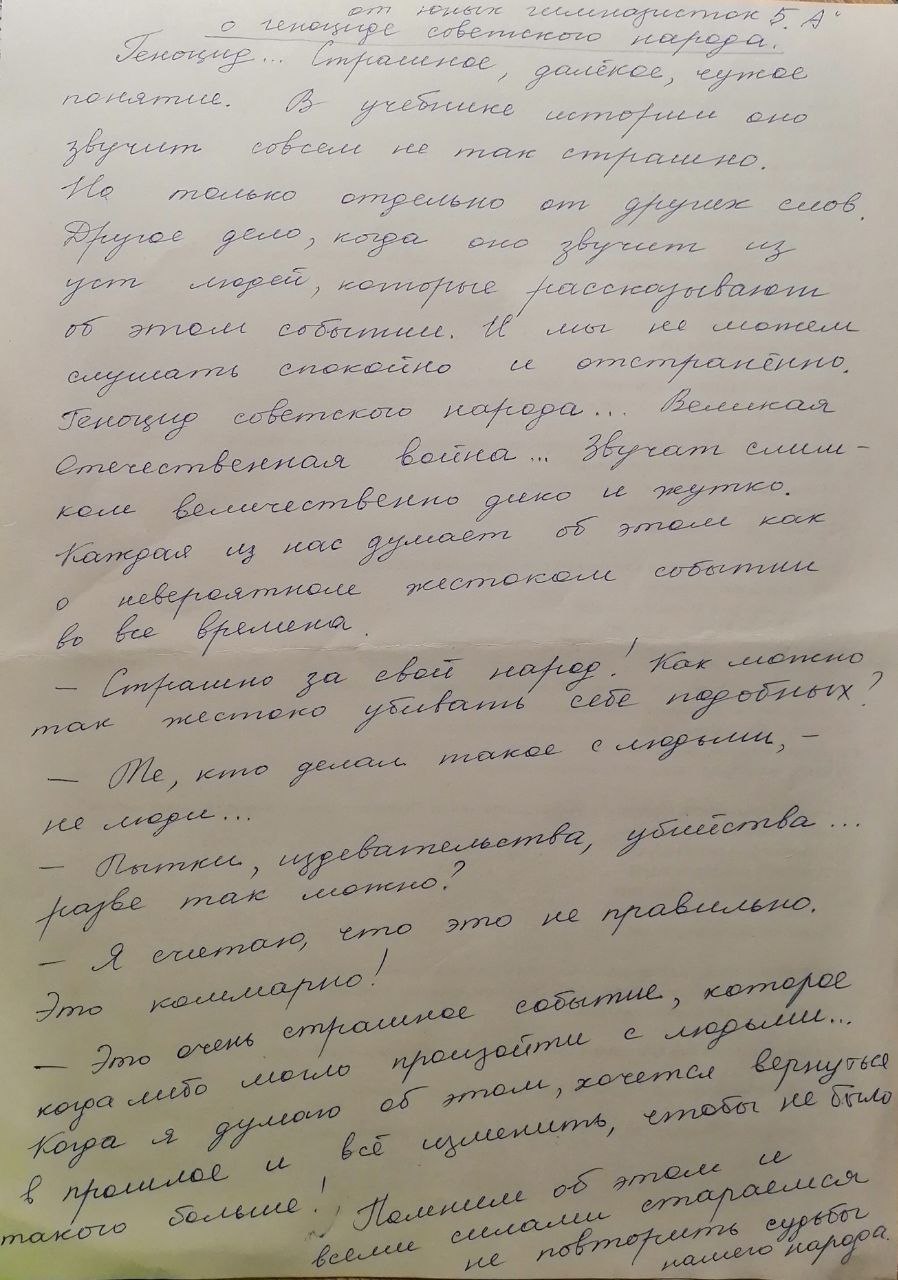 от юных гимназисток 5 „А“
о геноциде советского народа.
Геноцид... Страшное, далёкое, чужое
понятие. В учебнике истории оно
звучит совсем не так страшно.
Но только отдельно от других слов.
Другое дело, когда оно звучит из
уст людей, которые рассказывают
об этом событии. И мы не можем
слушать спокойно и отстранённо.
Геноцид советского народа... Великая
Отечественная война... Звучат слиш-
ком величественно дико и жутко.
Каждая из нас думает об этом как
о невероятном жестоком событии
во все времена.
– Страшно за свой народ! Как можно
так жестоко убивать себе подобных?
– Те, кто делал такое с людьми, –
не люди...
– Пытки, издевательства, убийства...
разве так можно?
– Я считаю, что это не правильно.
Это коммарно!
– Это очень страшное событие, которое
когда либо могло произойти с людьми...
Когда я думаю об этом, хочется вернуться
в прошлое и всё изменить, чтобы не было
такого больше! Помним об этом и
всеми силами стараемся
не повторить судьбы
нашего народа.